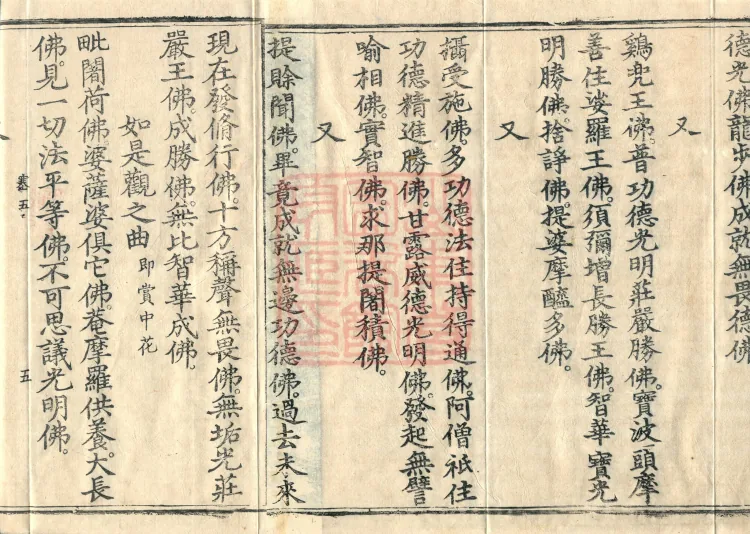 德光佛。龍步佛。成就無畏德佛。
又
鷄兜王佛。普功德光明莊嚴勝佛。寶波頭摩
善住娑羅王佛。須彌增長勝王佛。智華寶光
明勝佛。捨諍佛。提婆摩醯多佛。
又
攝受施佛。多功德法住持得通佛。阿僧祇住
功德精進勝佛。甘露威德光明佛。發起無譬
喻相佛。實智佛。求那提闍積佛。
又
提賒聞佛。畢竟成就無邊功德佛。過去未來
現在發脩行佛。十方稱聲無畏佛。無垢光莊
嚴王佛。成勝佛。無比智華成佛。
如是觀之曲 即賞中花
毗闍荷佛。婆薩婆俱它佛。菴摩羅供養。大長
佛。見一切法平等佛。不可思議光明佛。
又
五